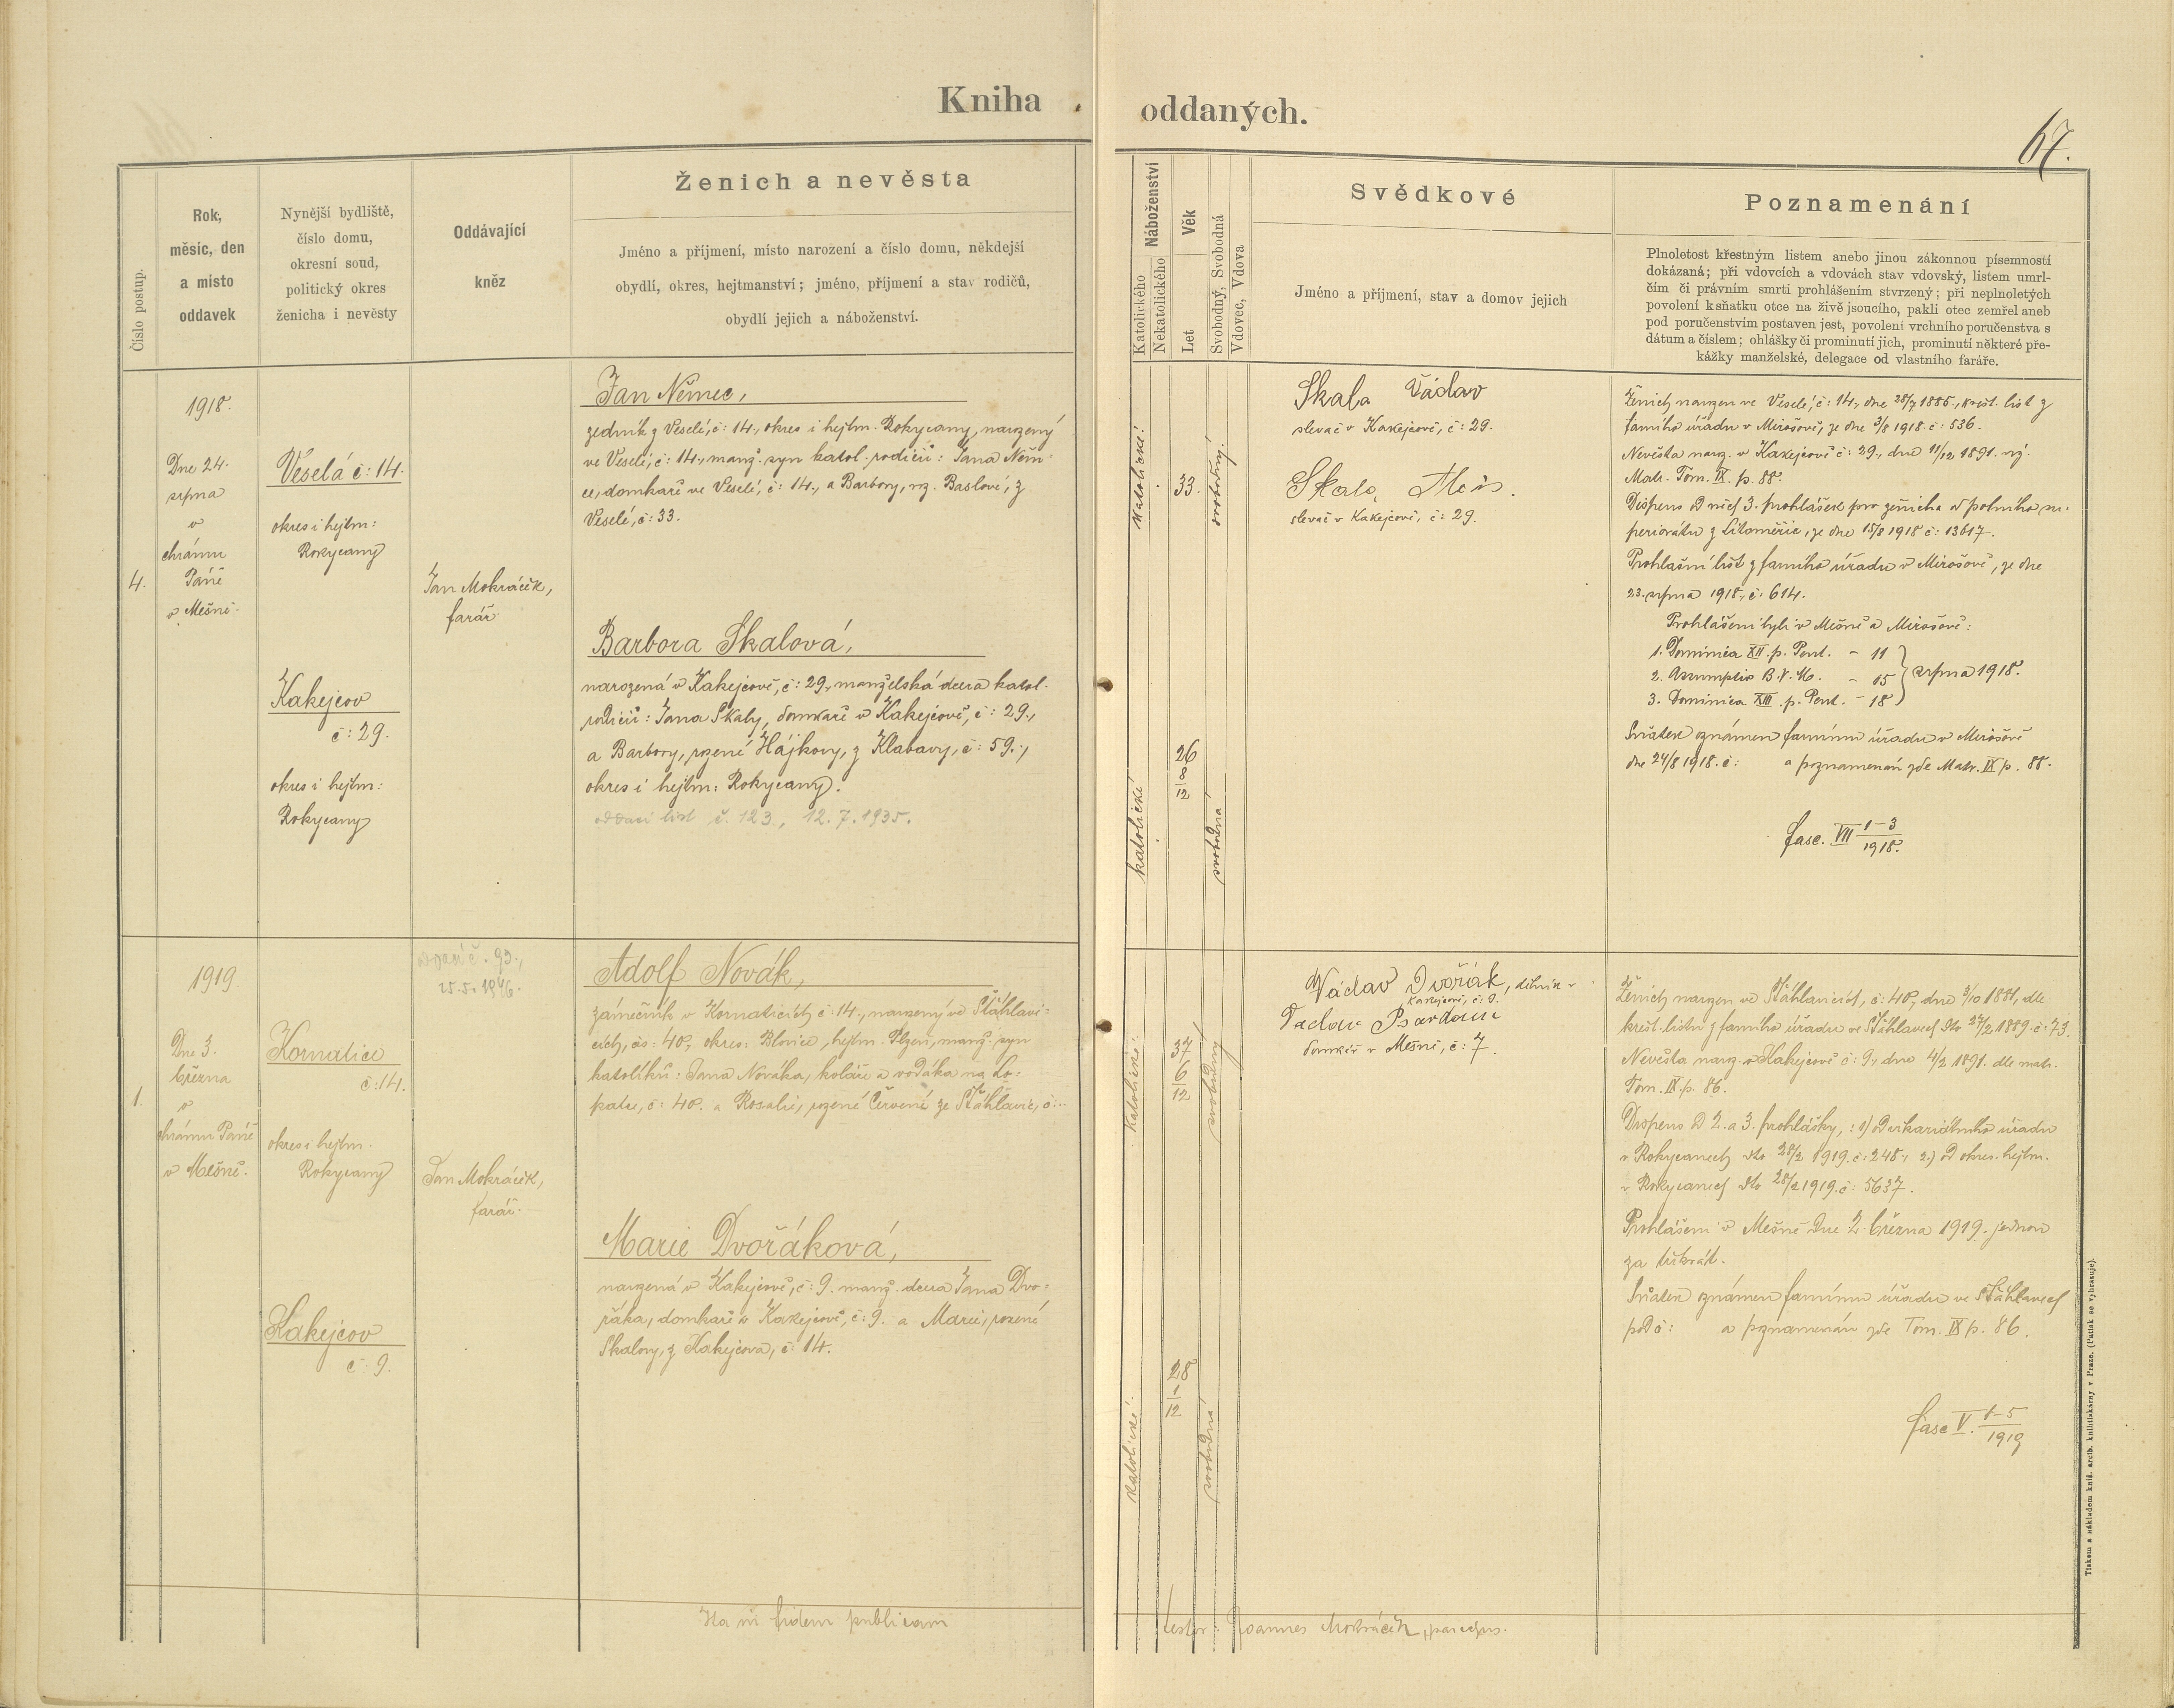 Kniha oddaných.
67.
Číslo postup.
Rok,
měsíc, den
a místo
oddavek
Nynější bydliště,
číslo domu,
okresní soud,
politický okres
ženicha i nevěsty
Oddávající
kněz
Ženich a nevěsta
Jméno a příjmení, místo narození a číslo domu, někdejší
obydlí, okres, hejtmanství; jméno, příjmení a stav rodičů,
obydlí jejich a náboženství.
Náboženství
Katolického
Nekatolického
Věk
Let
Svobodný, Svobodná
Vdovec, Vdova
Svědkové
Jméno a příjmení, stav a domov jejich
Poznamenání
Plnoletost křestným listem anebo jinou zákonnou písemností
dokázaná; při vdovcích a vdovách stav vdovský, listem umrl-
čím či právním smrti prohlášením stvrzený; při neplnoletých
povolení k sňatku otce na živě jsoucího, pakli otec zemřel aneb
pod poručenstvím postaven jest, povolení vrchního poručenstva s
dátum a číslem; ohlášky či prominutí jich, prominutí některé pře-
kážky manželské, delegace od vlastního faráře.
4.
1918.
Dne 24.
srpna
v
chrámu
Páně
v Mešně.
Veselá č: 14.
okres i hejtm:
Rokycany
Kakejcov
č: 29.
okres i hejtm:
Rokycany
Jan Mokráček,
farář.
Jan Němec,
zedník z Veselé, č: 14., okres i hejtm. Rokycany, narozený
ve Veselé, č: 14., manž. syn katol. rodičů: Jana Něm-
ce, domkaře ve Veselé, č: 14., a Barbory, roz. Baslové, z
Veselé, č: 33.
Barbora Skalová,
narozená v Kakejcově, č: 29., manželská dcera katol.
rodičů: Jana Skaly, domkaře v Kakejcově, č: 29.,
a Barbory, rozené Hájkovy, z Klabavy, č: 59.,
okres i hejtm: Rokycany.
oddací list č. 123., 12. 7. 1935.
katolické
33.
svobodný.
katolické
26
8
12
svobodná
Skala Václav
slevač v Kakejcově, č: 29.
Skala Alois.
slevač v Kakejcově, č: 29.
Ženich narozen ve Veselé, č: 14., dne 28/7 1885., křest. list z
farního úřadu v Mirošově, ze dne 3/8 1918. č: 536.
Nevěsta naroz. v Kakejcově č: 29., dne 11/12 1891.
Matr. Tom. IX. p. 88.
Dispens od všech 3. prohlášek pro ženicha od polního su-
periorátu z Litoměřic, ze dne 15/8 1918 č: 13617.
Prohlašní list z farního úřadu v Mirošově, ze dne
23. srpna 1918., č: 614.
Prohlášeni byli v Mešně a Mirošově:
1. Dominica XII. p. Pent. - 11
2. Assumptio B. V. M. - 15 srpna 1918.
3. Dominica XIII. p. Pent. - 18
Sňatek oznámen farnímu úřadu v Mirošově
dne 24/8 1918. č: a poznamenán zde Matr. IX p. 88.
fasc. VII 1-3
1918.
1.
1919.
Dne 3.
března
v
chrámu Páně
v Mešně.
Kornatice
č: 14.
okres i hejtm.
Rokycany
Kakejcov
č: 9.
č. 93.,
25.5.1946.
Jan Mokráček,
farář.
Adolf Novák,
zámečník v Kornaticích č: 14., narozený ve Šťáhlavi-
cích, čs: 40., okres: Blovice, hejtm. Plzeň, manž. syn
katolíků: Jana Nováka, koláře a vodáka na lo-
patce, č: 40. a Rosalie, rozené Červené ze Šťáhlavic, č:
Marie Dvořáková,
narozená v Kakejcově, č: 9. manž. dcera Jana Dvo-
řáka, domkaře v Kakejcově, č: 9. a Marie, rozené
Skalovy, z Kakejcova, č: 14.
katolické
37
6
12
svobodný
katolické
28
1
12
svobodná
Václav Dvořák, dělník v
Kakejcově, č: 9.
Václav
domkář v Mešně, č: 7.
Ženich narozen ve Šťáhlavicích, č: 40., dne 3/10 1881, dle
křest. listu z farního úřadu ve Šťáhlavech dto 27/2 1889. č: 73.
Nevěsta naroz. v Kakejcově č: 9., dne 4/2 1891. dle matr.
Tom. IX. p. 86.
Dispens od 2. a 3. prohlášky,: 1) od vikariátního úřadu
v Rokycanech dto 28/2 1919. č: 248., 2.) od okres. hejtm.
v Rokycanech dto 28/2 1919. č: 5637.
Prohlášeni v Mešně dne 2. března 1919. jednou
za třikrát.
Sňatek oznámen farnímu úřadu ve Šťáhlavech
pod č: a poznamenán zde Tom. IX p. 86.
fasc V. 1-5
1919
fidem publicam
testor: Joannes Mokráček, parochus.
Tiskem a nákladem kníž. arcib. knihtiskárny v Praze. (Patisk se vyhrazuje).